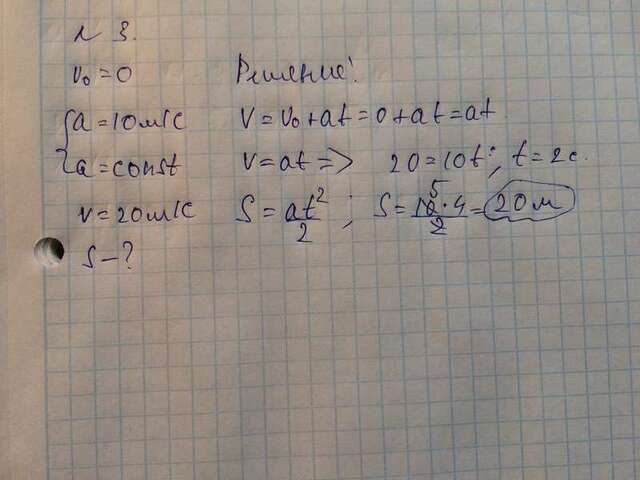 N 3.
v₀ = 0
{ a = 10 м/с
a = const
v = 20 м/с
S - ?
Решение:
V = v₀ + at = 0 + at = at.
v = at => 20 = 10t; t = 2c.
S = at²/2; S = 10·4/2 = 20 м
5